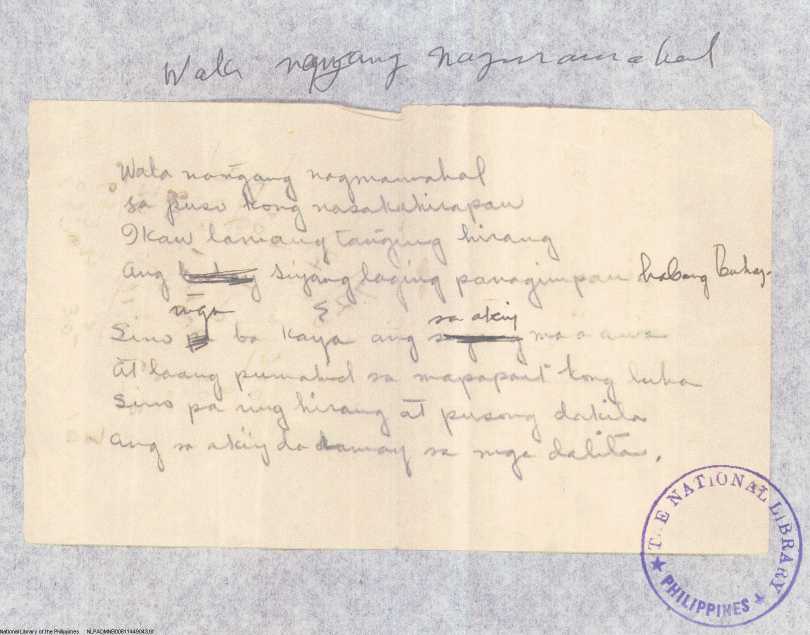 Wala ngayang nagmamahal
Wala nangang nagmamahal
sa puso kong nasakahirapan
Ikaw lamang tanging hirang
Ang siyang laging panagimpan habang buhay
nga sa akiy
Sino ba kaya ang maaawa
At laang pumahid sa mapapait kong luha
Sino pa ring hirang at pusong dakila
Ang sa akiy da damay sa mga dalita.
THE NATIONAL LIBRARY
PHILIPPINES
National Library of the Philippines